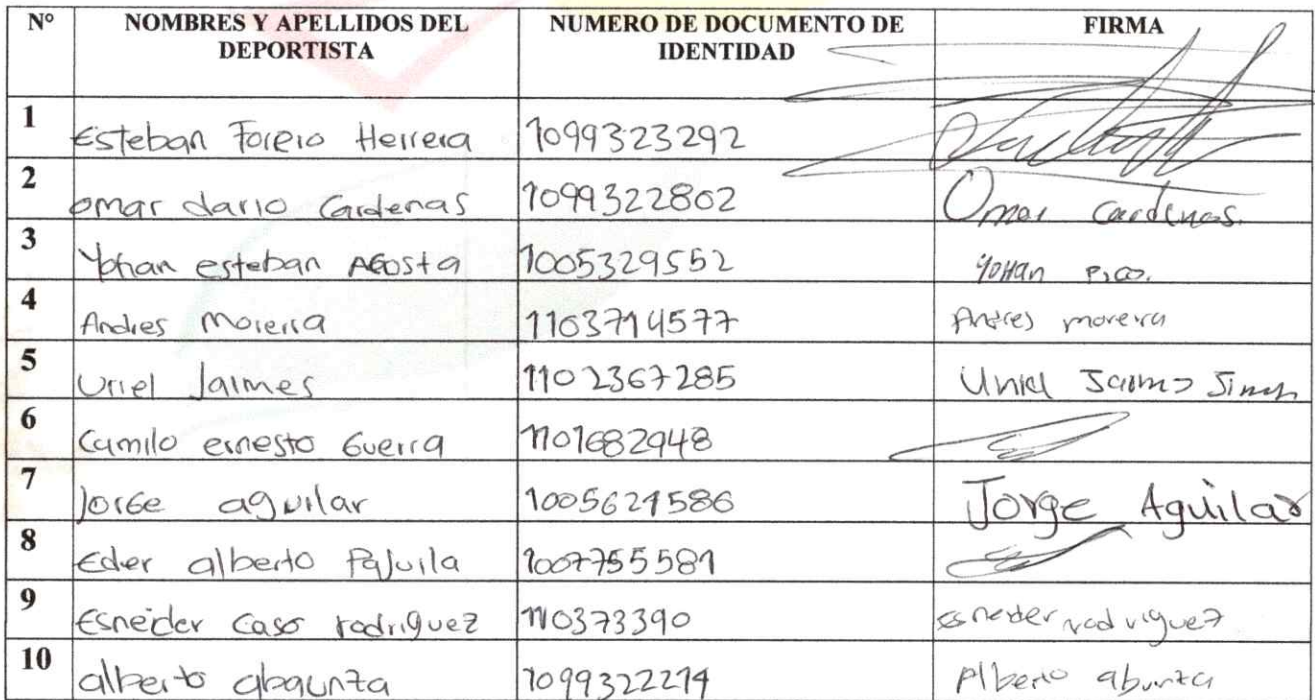 N° NOMBRES Y APELLIDOS DEL DEPORTISTA NUMERO DE DOCUMENTO DE IDENTIDAD FIRMA
1 Esteban Forero Herrera 1099323292
2 omar dario Cardenas 1099322802 Omar Cardenas.
3 Yohan esteban Acosta 1005329552 Yohan Pico.
4 Andres Moreira 1103714577 Andres moreira
5 Uriel Jaimes 1102367285 Uriel Jaimes
6 Camilo ernesto Guerra 1101682948
7 Jorge aguilar 1005621586 Jorge Aguilar
8 Eder alberto 1007755581
9 Esneider Caso rodriguez 110373390 Esneider rodriguez
10 alberto abaunza 1099322214 Alberto abunza